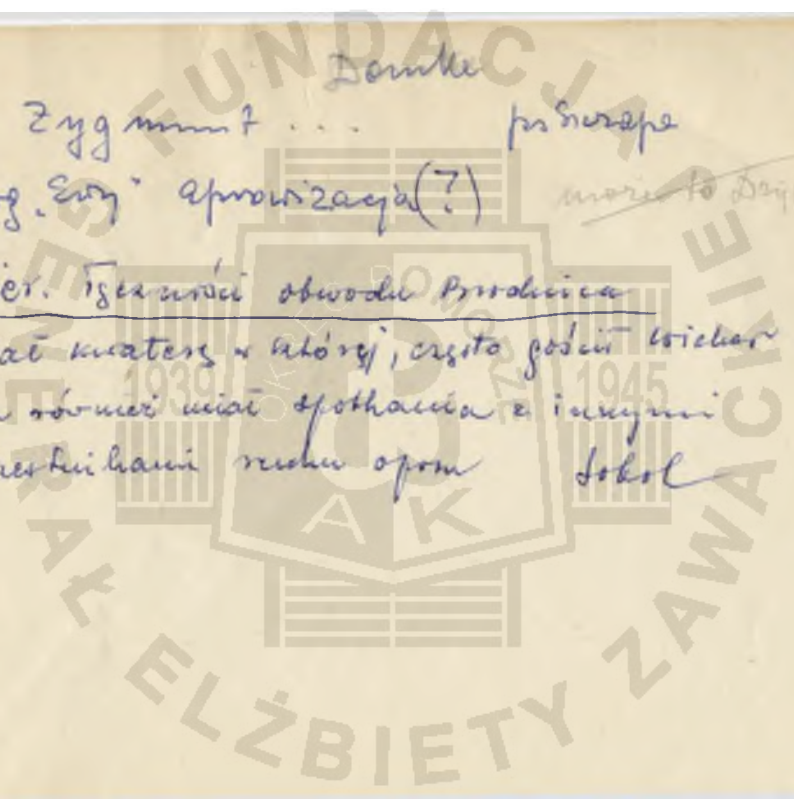 Domke
Zygmunt . . . ps Szczapa
g. "Ewy" aprowizacja (?)
może to
er. łączności obwodu Brodnica
ał kwaterę w której, często gościł Wicher
również miał spotkania z innymi
estnikami ruchu oporu Sokol
FUNDACJA GENERAŁ ELŻBIETY ZAWACKIEJ
OKRĘG POMORZE
1939 1945
AK